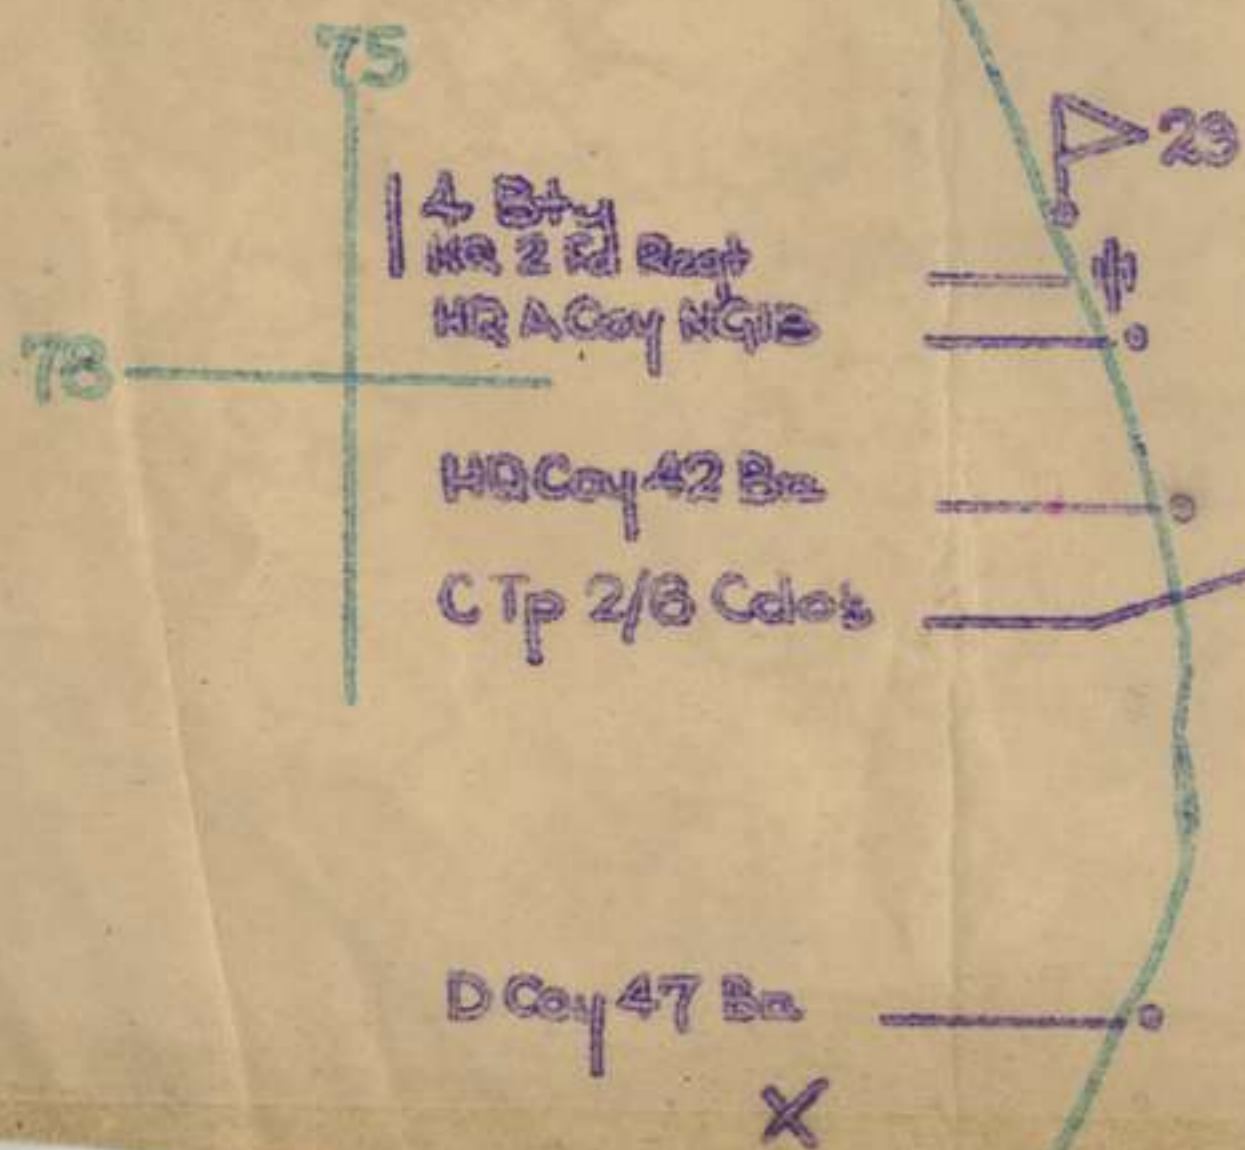 75
29
4 Bty
HQ 2 Fd Regt
HQ A Coy NGIB
78
HQ Coy 42 Bn
C Tp 2/8 Cdo's
D Coy 47 Bn
X